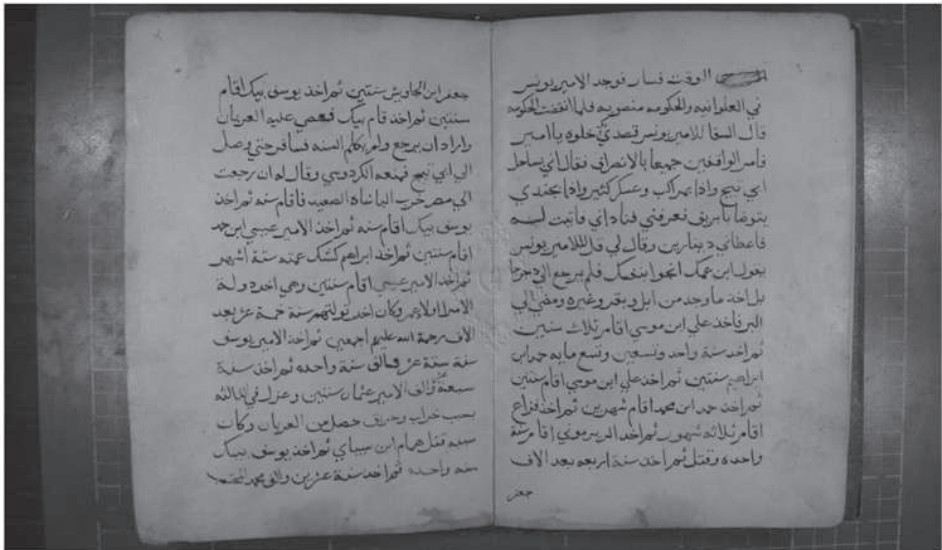 الوقت فسار فوجد الامير يونس
في العلوانيه والحكومه منصوبه فلما انقضت الحكومه
قال السقا للامير يونس قصدي خلوه يا امير
فامر الواقفين جميعا بالانصراف فقال اني بساحل
ابي تيج واذا بمراكب وعسكر كثير واذا بجندي
يتوضا بابريق فعرفني فناداني فاتيت لـه
فاعطاني دينارين وقال لي قل للامير يونس
يقول ابن عمك انجو ابنفسك فلم يرجع الي
بل اخذ ما وجد من ابل وبقر وغيره ومضي الي
البر فاخذ علي ابن موسي اقام ثلاث سنين
ثم اخذ سنة واحد وتسعين وتسع مايه حمد ابن
ابراهيم سنتين ثم اخذ علي ابن موسي اقام سنتين
ثم اخذ حمد ابن محمد اقام شهرين ثم اخذ
اقام ثلاثه شهور ثم اخذ اقام سنة
واحده وقتل ثم اخذ سنة اربعه بعد الاف
جعفر
جعفر ابن الجاويش سنتين ثم اخذ يوسف بيك اقام
سنتين ثم اخذ قام بيك فعصي عليه العربان
واراد ان يرجع ولم يكمل السنه فسافر حتي وصل
الي ابي تيج فمنعه الكردوسي وقال له ان رجعت
الي مصر خرب الباشاه الصعيد فاقام سنه ثم اخذ
يوسف بيك اقام سنه ثم اخذ الامير عيسي ابن حمد
اقام سنتين ثم اخذ ابراهيم كشك عمته ستة اشهر
ثم اخذ الامير عيسي اقام سنتين وهي اخر دولة
الامرا اولاد عمر وكان اخر توليتهم سنة خمسة عشر بعد
الاف رحمة الله عليهم اجمعين ثم اخذ الامير يوسف
سنة ستة عشر والف سنة واحده ثم اخذ سنة
سبعة والف الامير عثمان سنتين وعزل في الثالثه
بسبب خراب وحريق حصل من العربان وكان
سببه قتل همام ابن سيباي ثم اخذ يوسف بيك
سنه واحده ثم اخذ سنة عشرين والف محمد